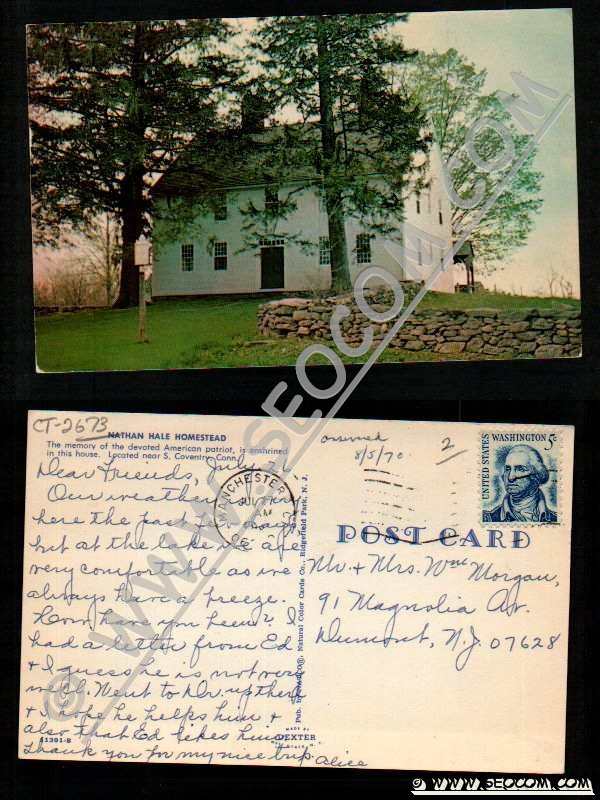 WWW.SEOCOM.COM
CT-2673
NATHAN HALE HOMESTEAD
The memory of the devoted American patriot, is enshrined
in this house. Located near S. Coventry Conn.
Dear Friends, July
Our weather
here the past few days
but at the lake we are
very comfortable as we
always have a breeze.
How have you been? I
had a letter from Ed
& I guess he is not very
well. Went to Dr. up there
& I hope he helps him &
also that Ed likes him.
Thank you for my nice trip.
Alice
61391-B
MANCHESTER
JUL 27
AM
answered
8/5/70
2
UNITED STATES
WASHINGTON 5c
POST CARD
Mr + Mrs. Wm Morgan,
91 Magnolia Av.
Dumont, N.J. 07628
Natural Color Cards Co., Ridgefield Park, N. J.
MADE BY
DEXTER
© WWW.SEOCOM.COM